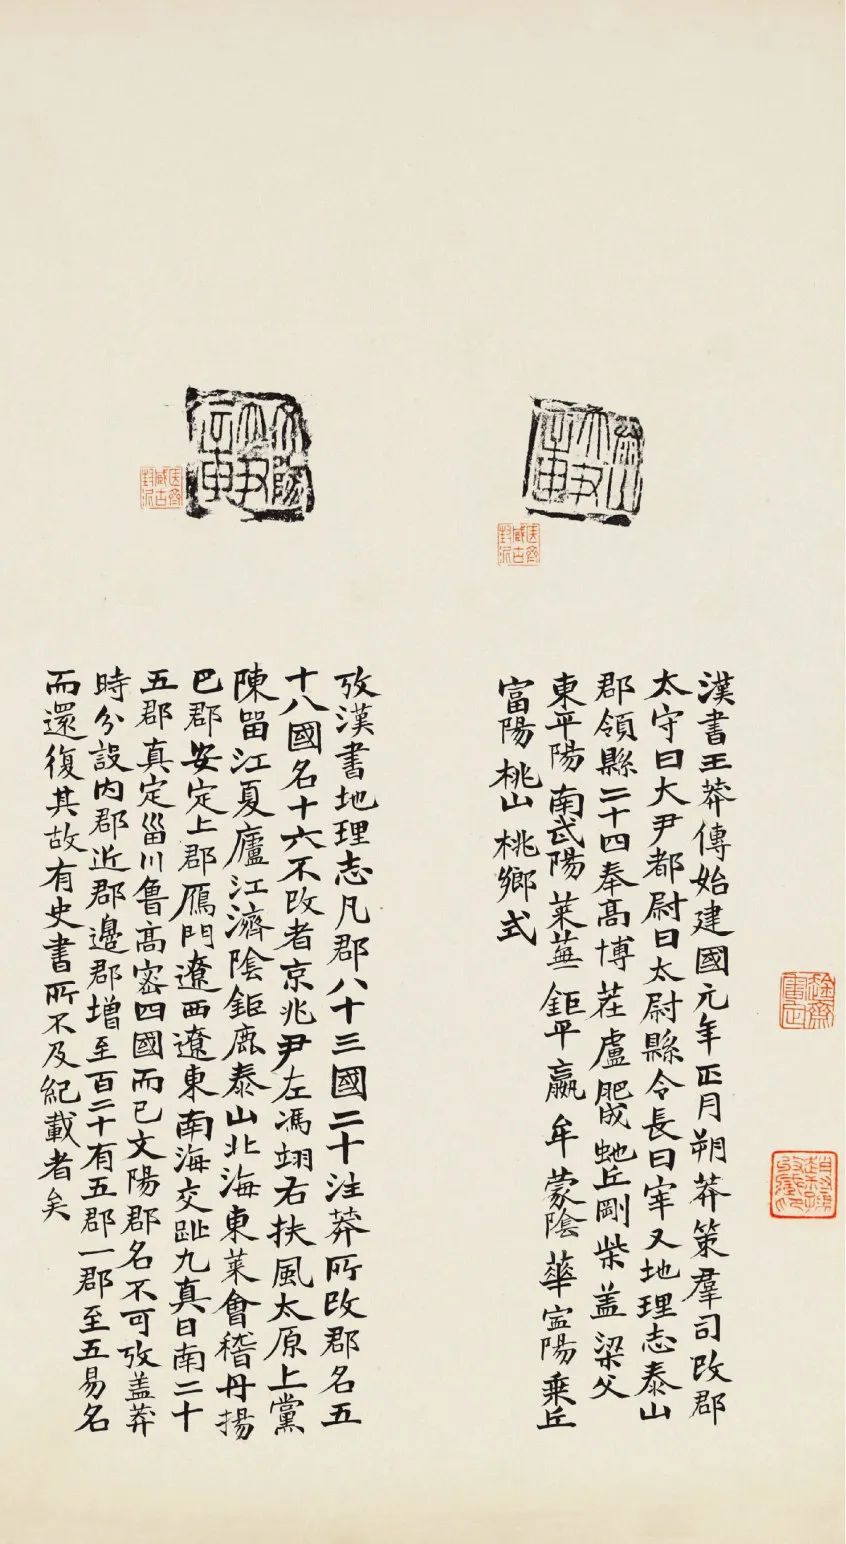 漢書王莽傳始建國元年正月朔莽策羣司改郡
太守曰大尹都尉曰太尉縣令長曰宰又地理志泰山
郡領縣二十四奉高博茬盧肥成虵丘剛柴蓋梁父
東平陽南武陽萊蕪鉅平嬴牟蒙陰華寍陽乘丘
富陽桃山桃鄉式
攷漢書地理志凡郡八十三國二十注莽所改郡名五
十八國名十六不改者京兆尹左馮翊右扶風太原上黨
陳留江夏廬江濟陰鉅鹿泰山北海東萊會稽丹揚
巴郡安定上郡雁門遼西遼東南海交趾九真日南二十
五郡真定甾川魯高密四國而已文陽郡名不可攷蓋莽
時分設內郡近郡邊郡增至百二十有五郡一郡至五易名
而還復其故有史書所不及紀載者矣